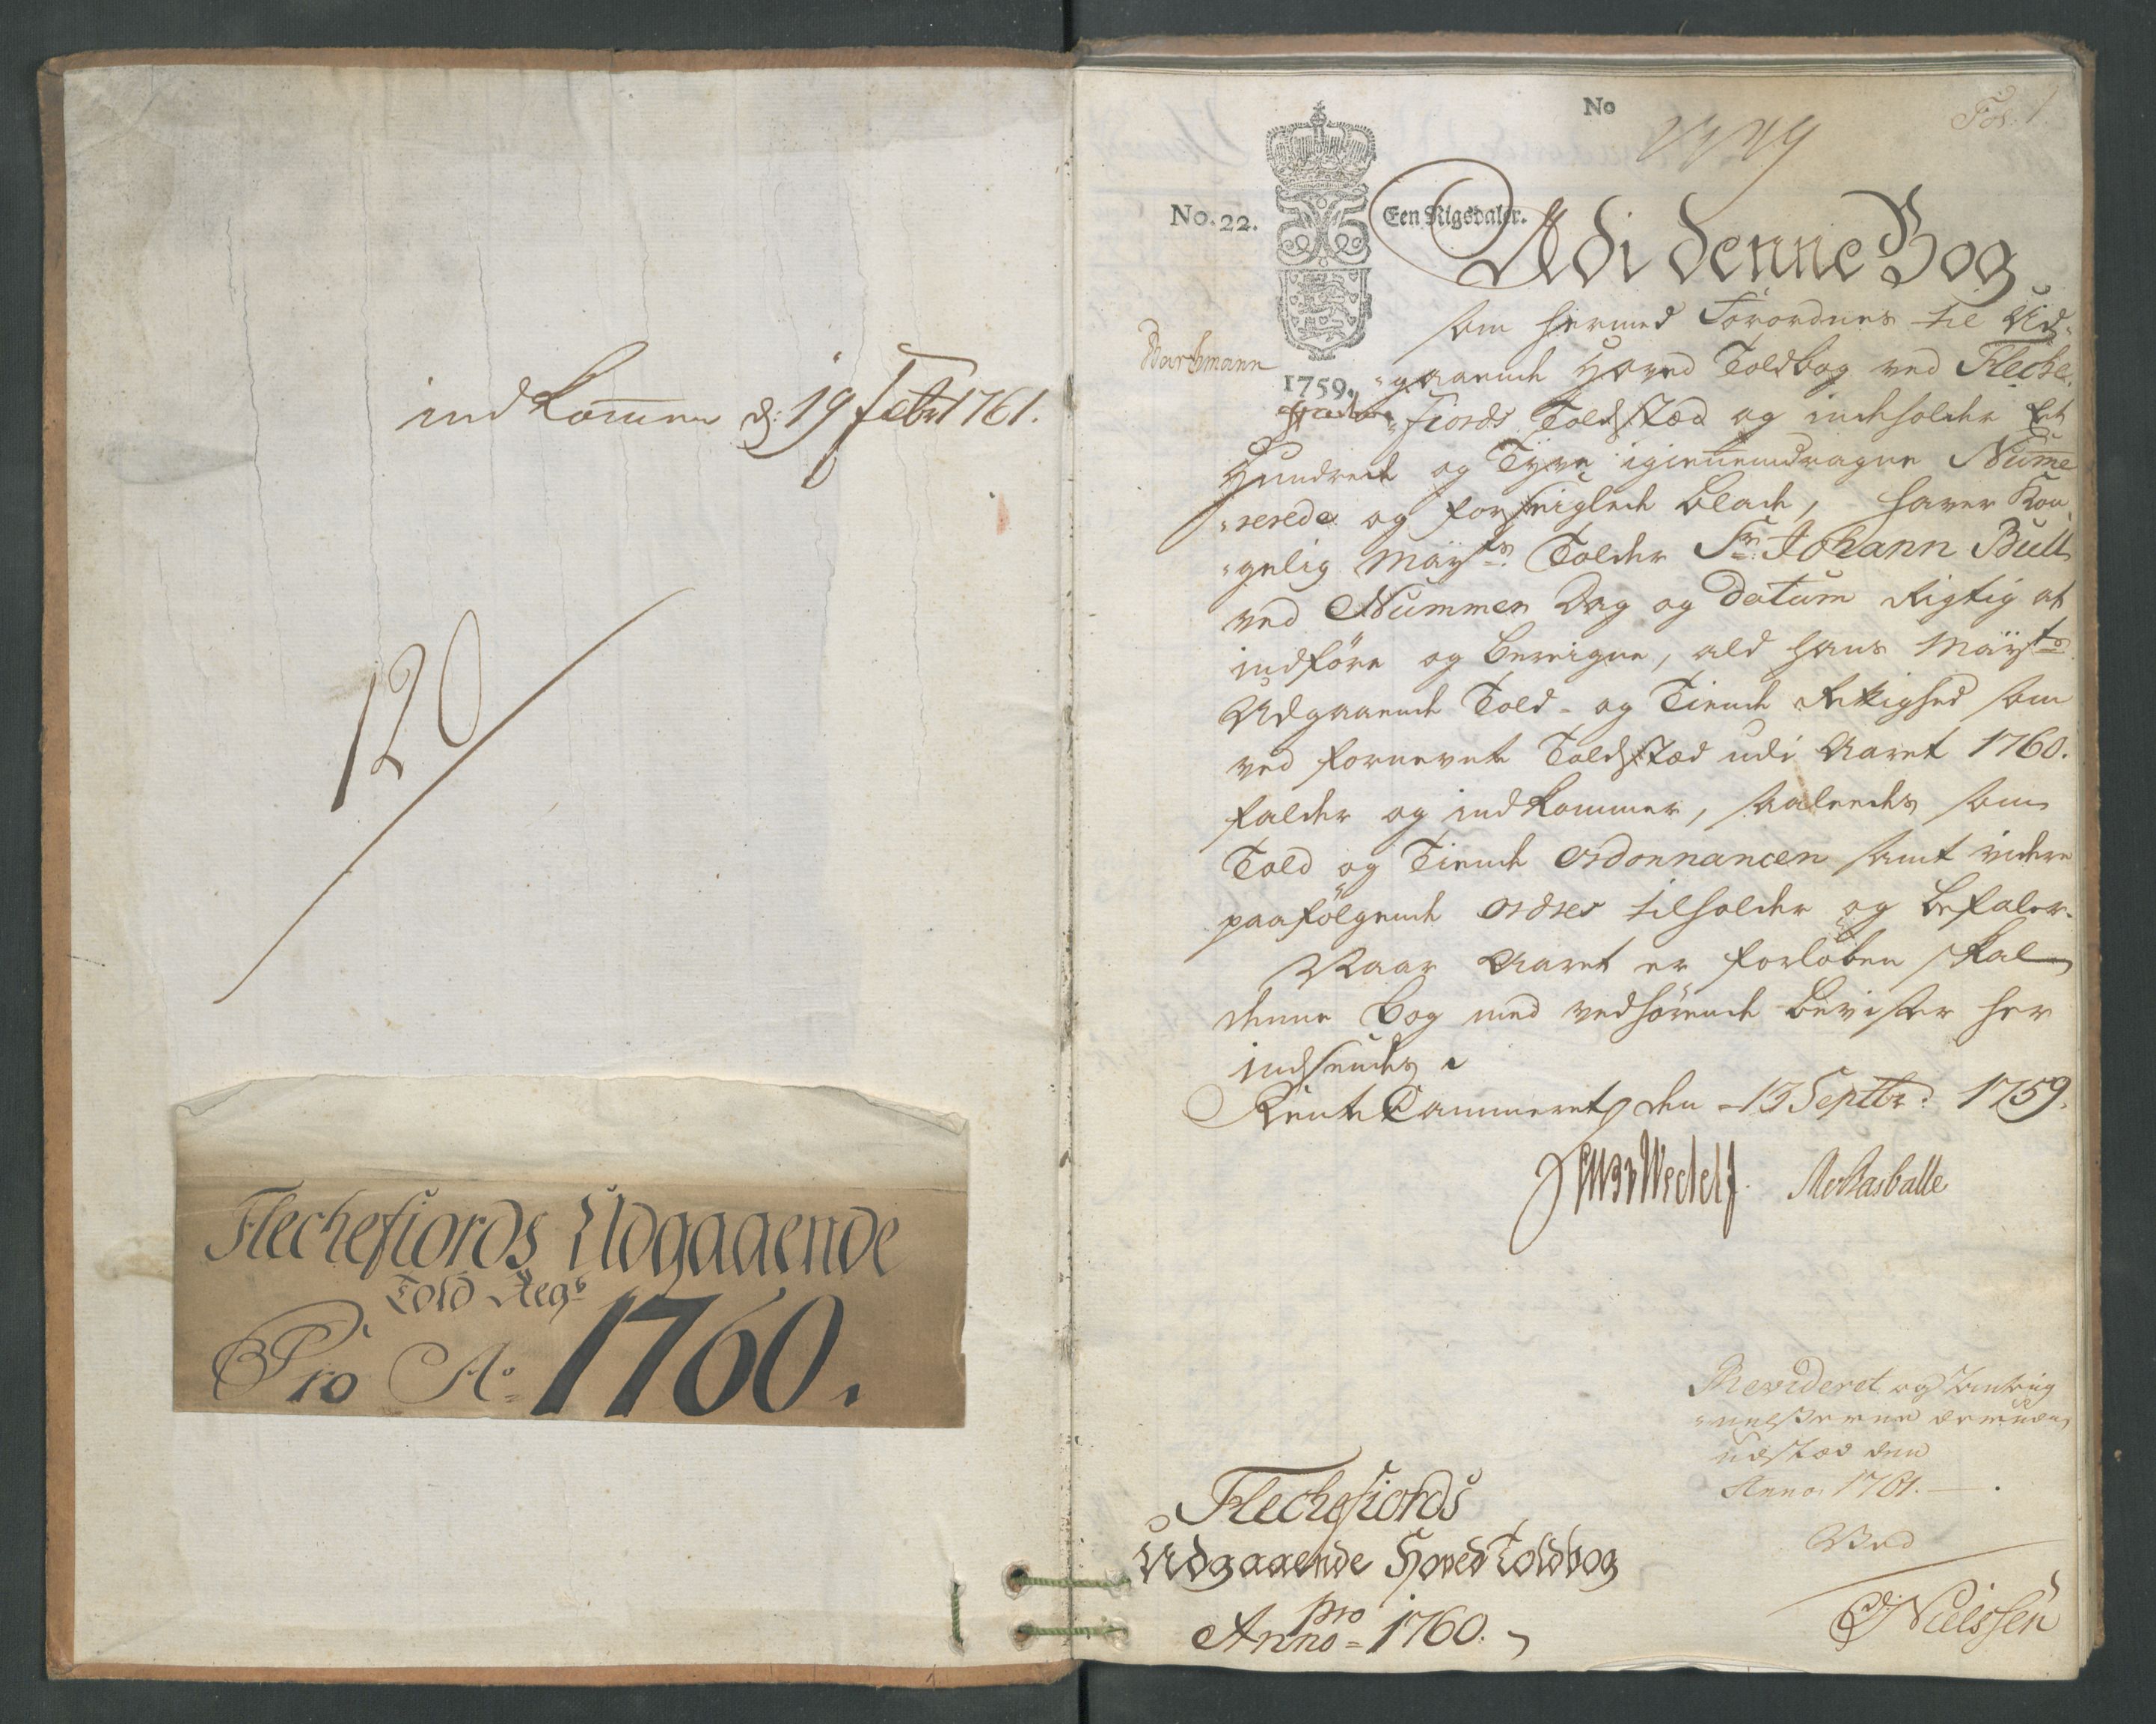 indkommen d: 19 Febr 1761.
120
Flechefiords Udgaaende
Told Regr
Pro Ao 1760.
No
Fol. 1
No. 22.
Een Rigsdaler.
Udi denne Bog
som hermed Forordnes til Ud-
1759.
-gaaende Hoved Toldbog ved Fleche-
-fiords Toldstæd og indeholder Et
Hundrede og Tyve igiennemdragne Nume
-rerede og forseiglede blade, haver Kon-
-gelig Mayts Tolder Sr. Johann Bull
ved Nummer Dag og Datum Rigtig at
indføre og beregne, ald hans Mayts
Udgaaende Told- og Tiende Rettighed som
ved fornevnte Toldstæd udi Aaret 1760.
falder og indkommer, saaledes som
Told og Tiende Ordonnancen samt videre
paafølgende Ordres tilholder og befaler.
Naar Aaret er forløben skal
denne bog med vedhørende beviser her
indsendes.
Rente Cammeret den 13 Septbr: 1759.
Revideret og
udstæd den
Anno 1761.
Ved
Nielssen
Flechefiords
Udgaaende Hoved Toldbog
pro
Anno 1760.